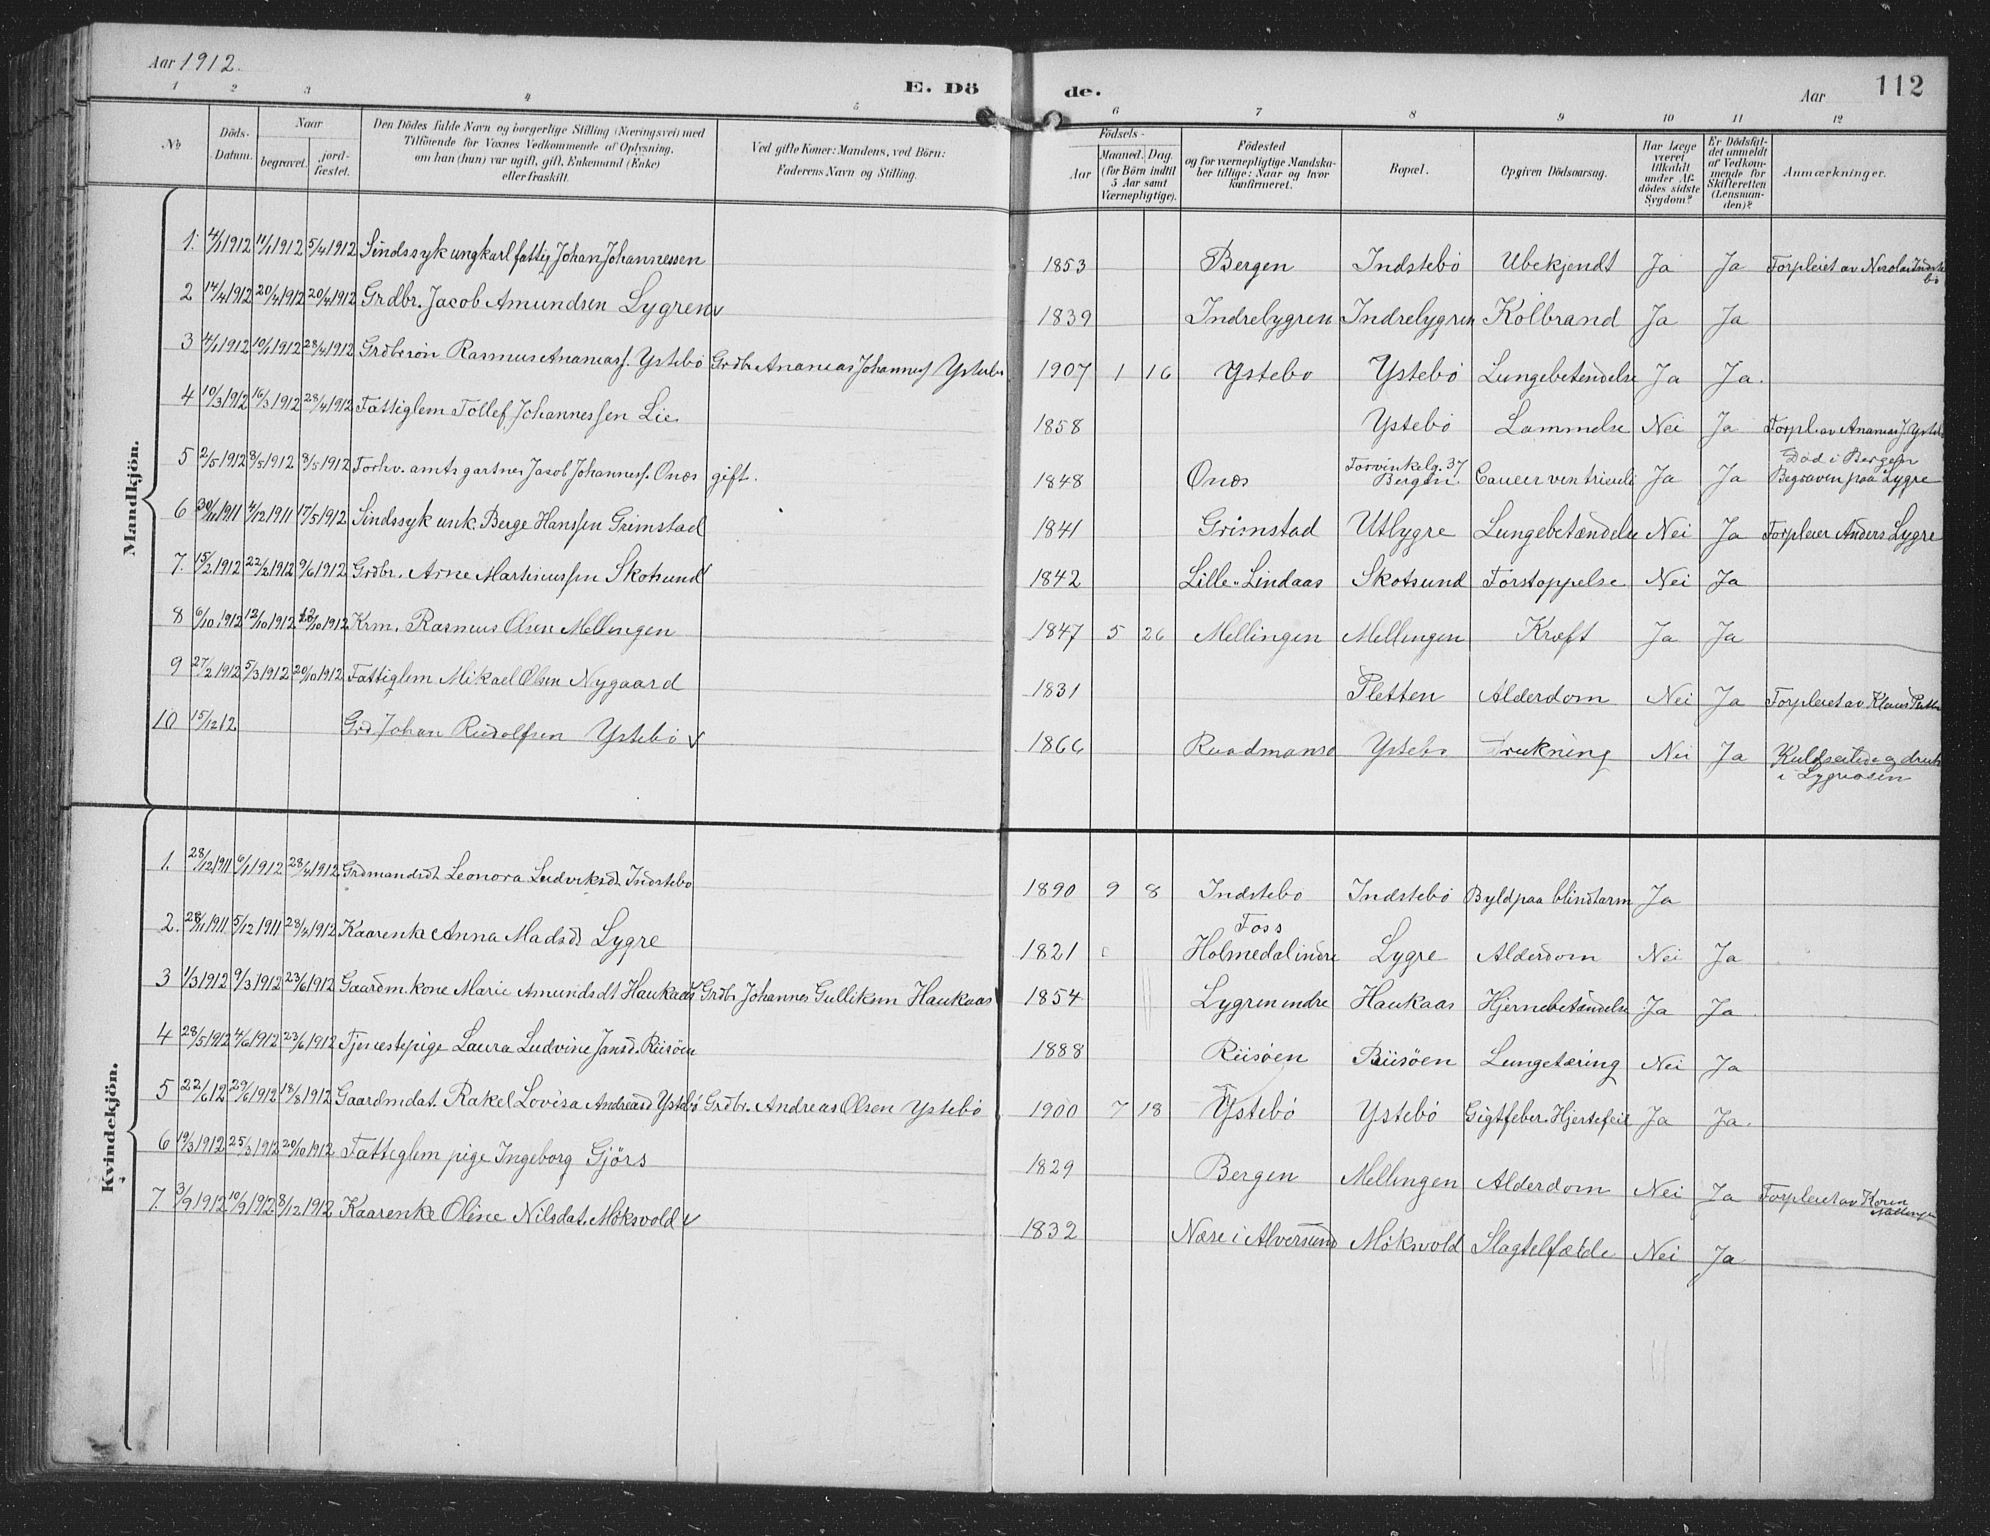 Aar 1912.
E. Dö de.
Aar
112
1 2 3 4 5 6 7 8 9 10 11 12
No
Döds-Datum.
Naar
begravet.
jord-fæstet.
Den Dödes fulde Navn og borgerlige Stilling (Næringsvei) med
Tilföiende for Voxnes Vedkommende af Oplysning,
om han (hun) var ugift, gift, Enkemand (Enke)
eller fraskilt.
Ved gifte Koner: Mandens, ved Börn:
Faderens Navn og Stilling.
Födsels-
Aar
Maaned. Dag.
(for Börn indtil
5 Aar samt
Værnepligtige).
Födested
og for værnepligtige Mandska-
ber tillige: Naar og hvor
konfirmeret.
Bopæl.
Opgiven Dödsaarsag.
Har Læge
været
tilkaldt
under Af-
dödes sidste
Sygdom?
Er Dödsfal-
det anmeldt
af Vedkom-
mende for
Skifteretten
(Lensman-
den)?
Anmærkninger.
Mandkjön.
1. 4/1 1912 11/1 1912 5/4 1912 Sindssyk ungkarl fattig Johan Johannessen 1853 Bergen Indstebö Ubekjendt Ja Ja Forpleiet av Nicolai Indste
bö
2 14/4 1912 20/4 1912 20/4 1912 Grdbr. Jacob Amundsen Lygren v 1839 Indrelygren Indrelygren Kolbrand Ja Ja
3 4/1 1912 10/1 1912 28/4 1912 Grdbrsön Rasmus Ananiass. Ystebö Grdbr Ananias Johannes Ystebö 1907 1 16 Ystebo Ystebö Lungebetendelse Ja Ja.
4 10/3 1912 16/3 1912 28/4 1912 Fattiglem Tollef Johannessen Lie 1858 Ystebö Lammelse Nei Ja Forpl. av Ananias J. Ysteb
5 2/5 1912 8/5 1912 8/5 1912 Forhv. amtsgartner Jacob Johannes. Onæs gift. 1848 Onæs Torvinkelg. 37
Bergen. Cancer ventriculi Ja Ja Död i Bergen
Begraven paa Lygre
6 30/11 1911 4/12 1911 17/5 1912 Sindssyk unk. Berge Hanssen Grimstad 1841 Grimstad Utlygre Lungebetændelse Nei Ja Forpleier Anders Lygre
7. 15/2 1912 22/2 1912 9/6 1912 Grdbr. Arne Martinussen Skotsund 1842 Lille-Lindaas Skotsund Forstoppelse Nei Ja
8 6/10 1912 12/10 1912 /10 1912 Krm. Rasmus Olsen Mellingen 1847 5 26 Mellingen Mellingen Kræft Ja Ja
9 27/2 1912 5/3 1912 20/10 1912 Fattiglem Mikael Olsen Nygaard 1831 Pletten Alderdom Nei Ja Forpleiet av Klaus Plett
10 15/12 12 Grd Johan Rudolfsen Ystebö v 1866 Ystebo Drukning Nei Ja
i Lygreosen
Kvindekjön.
1. 28/12 1911 6/1 1912 28/4 1912 Grdmandsdt Leonora Ludviksdt Indstebo 1890 9 8 Indstebo Indstebö Byld paa blindtarm Ja
2. 28/11 1911 5/12 1911 28/4 1912 Kaarenke Anna Madsdt Lygre 1821 Foss
Holmedal indre Lygre Alderdom Nei Ja
3 1/3 1912 9/3 1912 23/6 1912 Gaardm.kone Marie Amundsdt Haukaas Grdbr Johannes Gulliksen Haukaas 1854 Lygren indre Haukaas Hjernebetændelse Ja Ja
4 28/5 1912 4/6 1912 23/6 1912 Tjenestepige Laura Ludvine Jansd. Riisöen 1888 Riisöen Riisöen Lungetæring Nei Ja
5 22/6 12 29/6 1912 18/8 1912 Gaardmdat. Rakel Lovisa Andreasd Ystebö Grdbr. Andreas Olsen Ystebö 1900 7 18 Ystebö Ystebö Gigtfeber. Hjertefeil Ja Ja.
6 19/3 1912 25/3 1912 20/10 1912 Fattiglem pige Ingeborg Gjörs 1829 Bergen Mellingen Alderdom Nei Ja Forpleiet av Karen
Mellingen
7. 3/9 1912 10/9 1912 8/12 1912 Kaarenke Oline Nilsdat. Möksvold v 1832 Næse i Alversund Möksvold Slagtelfælde Nei Ja